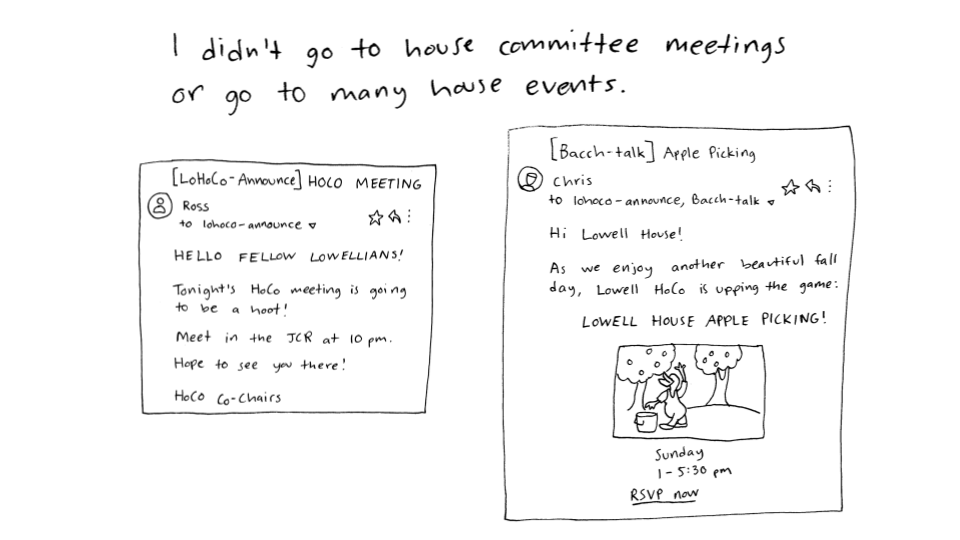 I didn't go to house committee meetings
or go to many house events.
[LoHoCo-Announce] HOCO MEETING
Ross
to lohoco-announce
HELLO FELLOW LOWELLIANS!
Tonight's HoCo meeting is going
to be a hoot!
Meet in the JCR at 10 pm.
Hope to see you there!
HoCo Co-Chairs
[Bacch-talk] Apple Picking
Chris
to lohoco-announce, Bacch-talk
Hi Lowell House!
As we enjoy another beautiful fall
day, Lowell HoCo is upping the game:
LOWELL HOUSE APPLE PICKING!
Sunday
1-5:30 pm
RSVP now